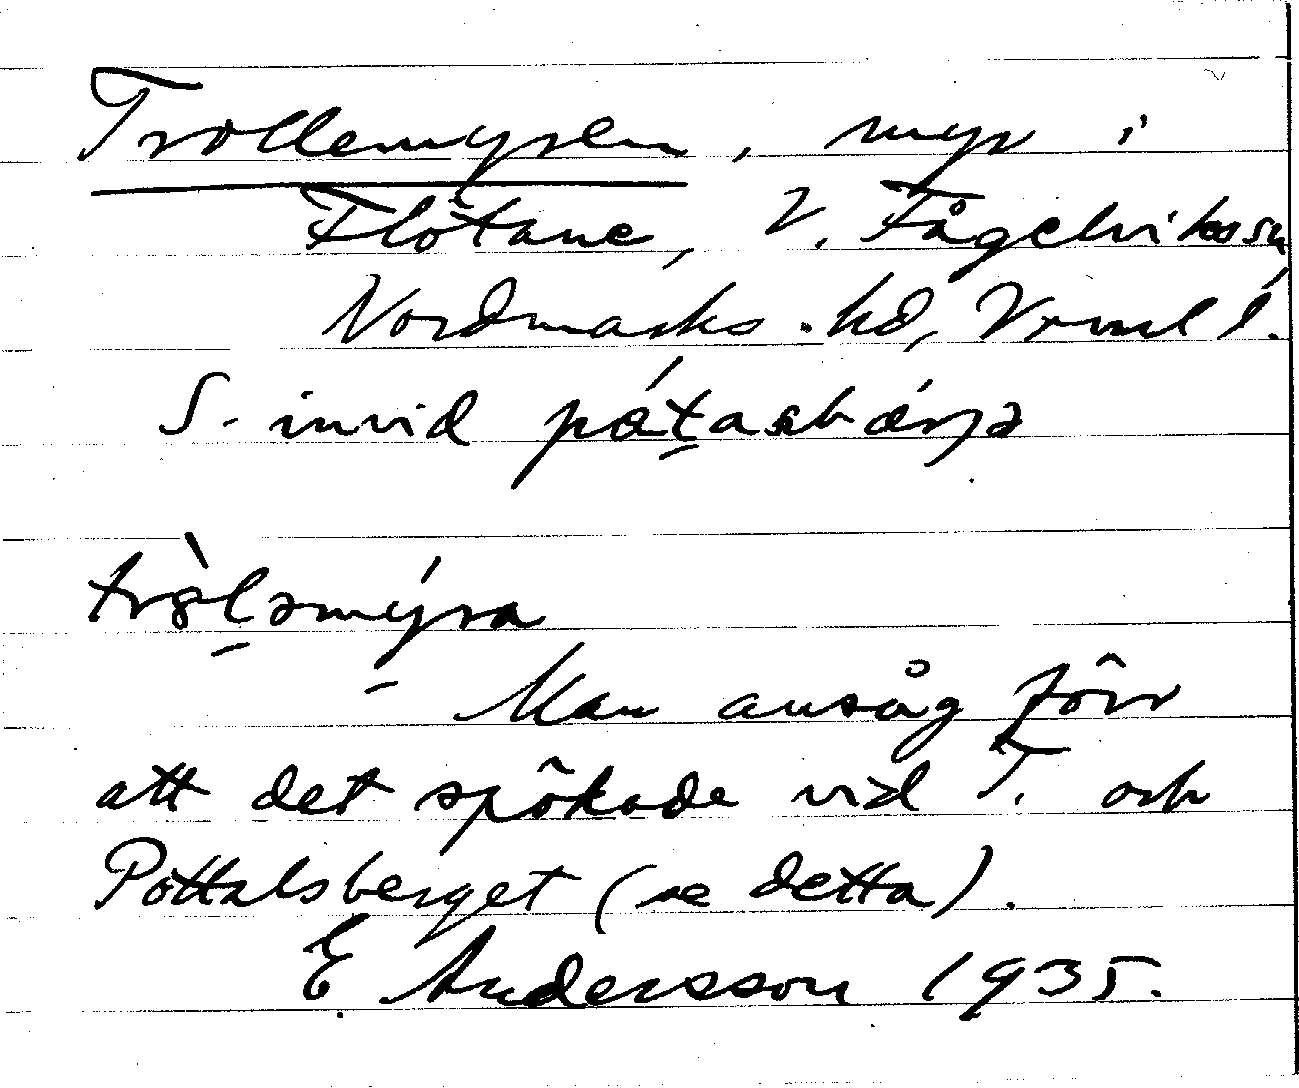 Trollemyren, myr i
Flötane, V. Fågelviks sn
Nordmarks hd, Vrml l.
S. invid
Man ansåg förr
att det spökade vid T. och
Pottalsberget (se detta).
E Andersson 1935.